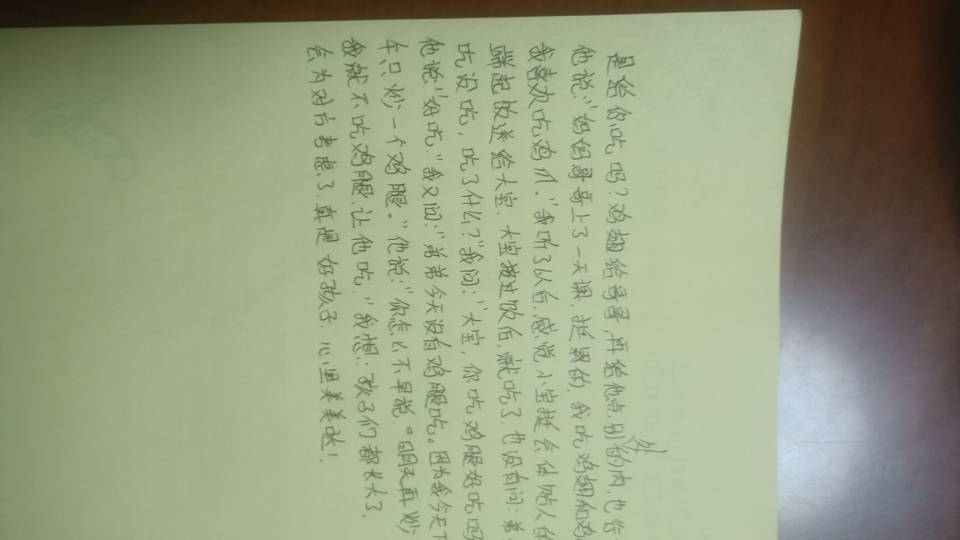 是给你吃吗？鸡翅给哥哥，再给他点别的肉，也行
外
他说："妈妈哥哥上了一天课，挺累的，我吃鸡翅和鸡
我喜欢吃鸡爪。"我听了以后，感觉小宝挺会体贴人的
端起饭送给大宝，大宝接过饭后，就吃了，也没有问：弟
吃没吃，吃了什么？"我问："大宝，你吃鸡腿好吃吗
他说："好吃。"我又问："弟弟今天没有鸡腿吃。因为我今天下
午只炒一个鸡腿。"他说："你怎么不早说。明天再炒
我就不吃鸡腿，让他吃。"我想：孩子们都长大了，
会为对方考虑了，真是好孩子，心里美美哒！